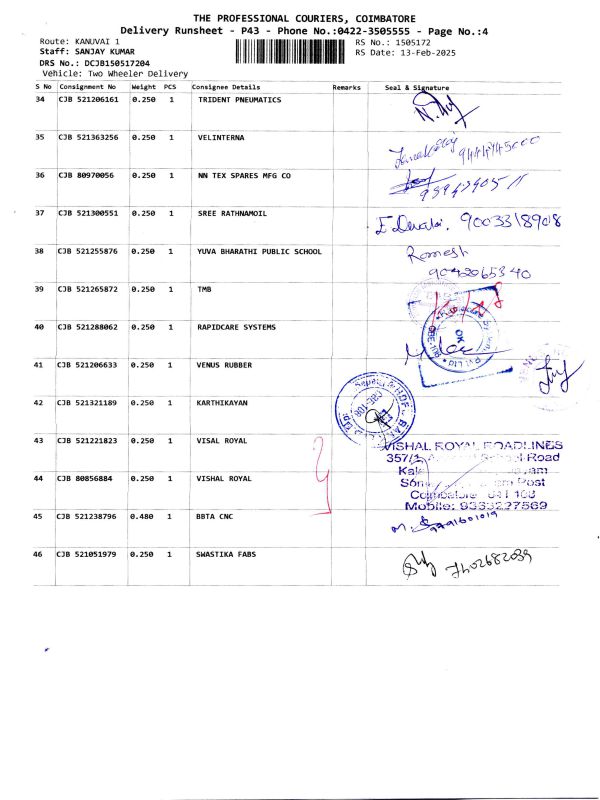 THE PROFESSIONAL COURIERS, COIMBATORE
Delivery Runsheet - P43 - Phone No.:0422-3505555 - Page No.:4
Route: KANUVAI 1 RS No.: 1505172
Staff: SANJAY KUMAR RS Date: 13-Feb-2025
DRS No.: DCJB150517204
Vehicle: Two Wheeler Delivery
S No Consignment No Weight PCS Consignee Details Remarks Seal & Signature
34 CJB 521206161 0.250 1 TRIDENT PNEUMATICS
35 CJB 521363256 0.250 1 VELINTERNA
36 CJB 80970056 0.250 1 NN TEX SPARES MFG CO
37 CJB 521300551 0.250 1 SREE RATHNAMOIL 9003318908
38 CJB 521255876 0.250 1 YUVA BHARATHI PUBLIC SCHOOL Romesh
9042065340
39 CJB 521265872 0.250 1 TMB
40 CJB 521288062 0.250 1 RAPIDCARE SYSTEMS OK
41 CJB 521206633 0.250 1 VENUS RUBBER
42 CJB 521321189 0.250 1 KARTHIKAYAN
43 CJB 521221823 0.250 1 VISAL ROYAL VISHAL ROYAL ROADLINES
School Road
44 CJB 80856884 0.250 1 VISHAL ROYAL
Post
Coimbatore 641 108
Mobile: 9333227569
45 CJB 521238796 0.480 1 BBTA CNC
46 CJB 521051979 0.250 1 SWASTIKA FABS 7402682039